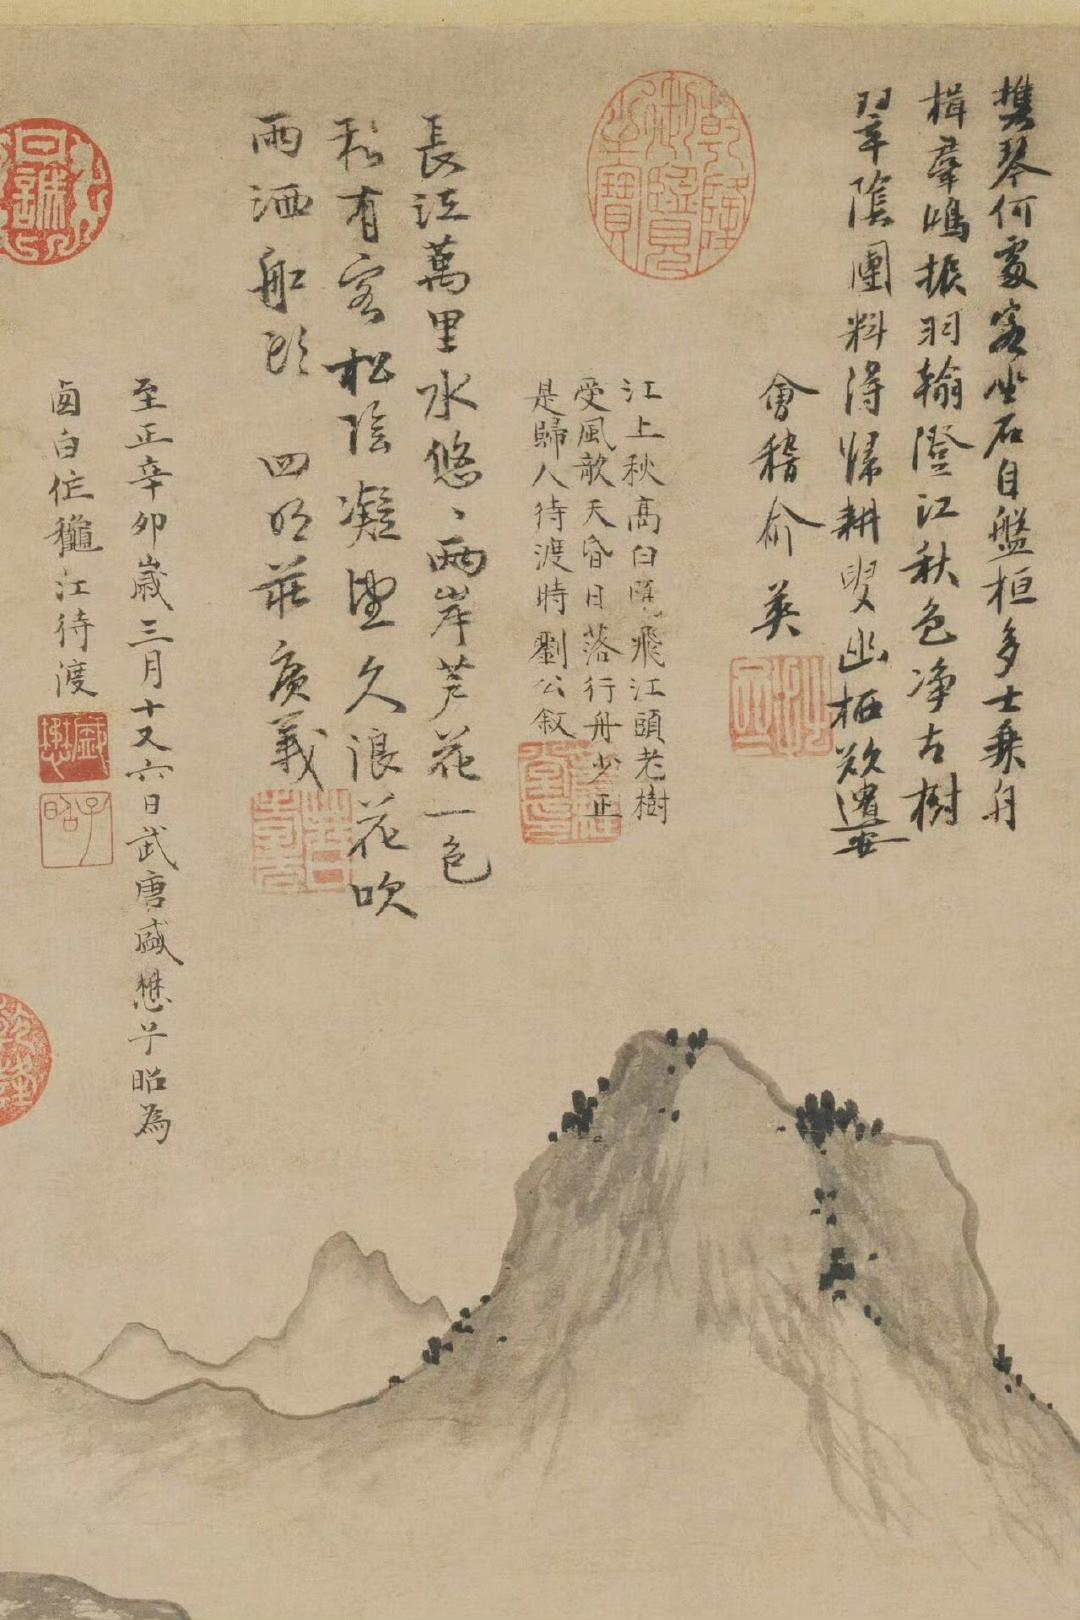 攜琴何處客坐石自盤桓多士乘舟
楫羣鴻振羽翰澄江秋色净古樹
翠陰團料得歸耕叟幽栖欲遺安
會稽俞英
乾隆
御覽
之寶
江上秋高白鴈飛江頭老樹
受風欹天昏日落行舟少正
是歸人待渡時劉公叙
長江萬里水悠〻兩岸芦花一色
秋有客松陰凝望久浪花吹
雨洒船頭 四明莊庚義
至正辛卯歲三月十又六日武唐盛懋子昭為
卤白作秋江待渡
盛懋
子昭